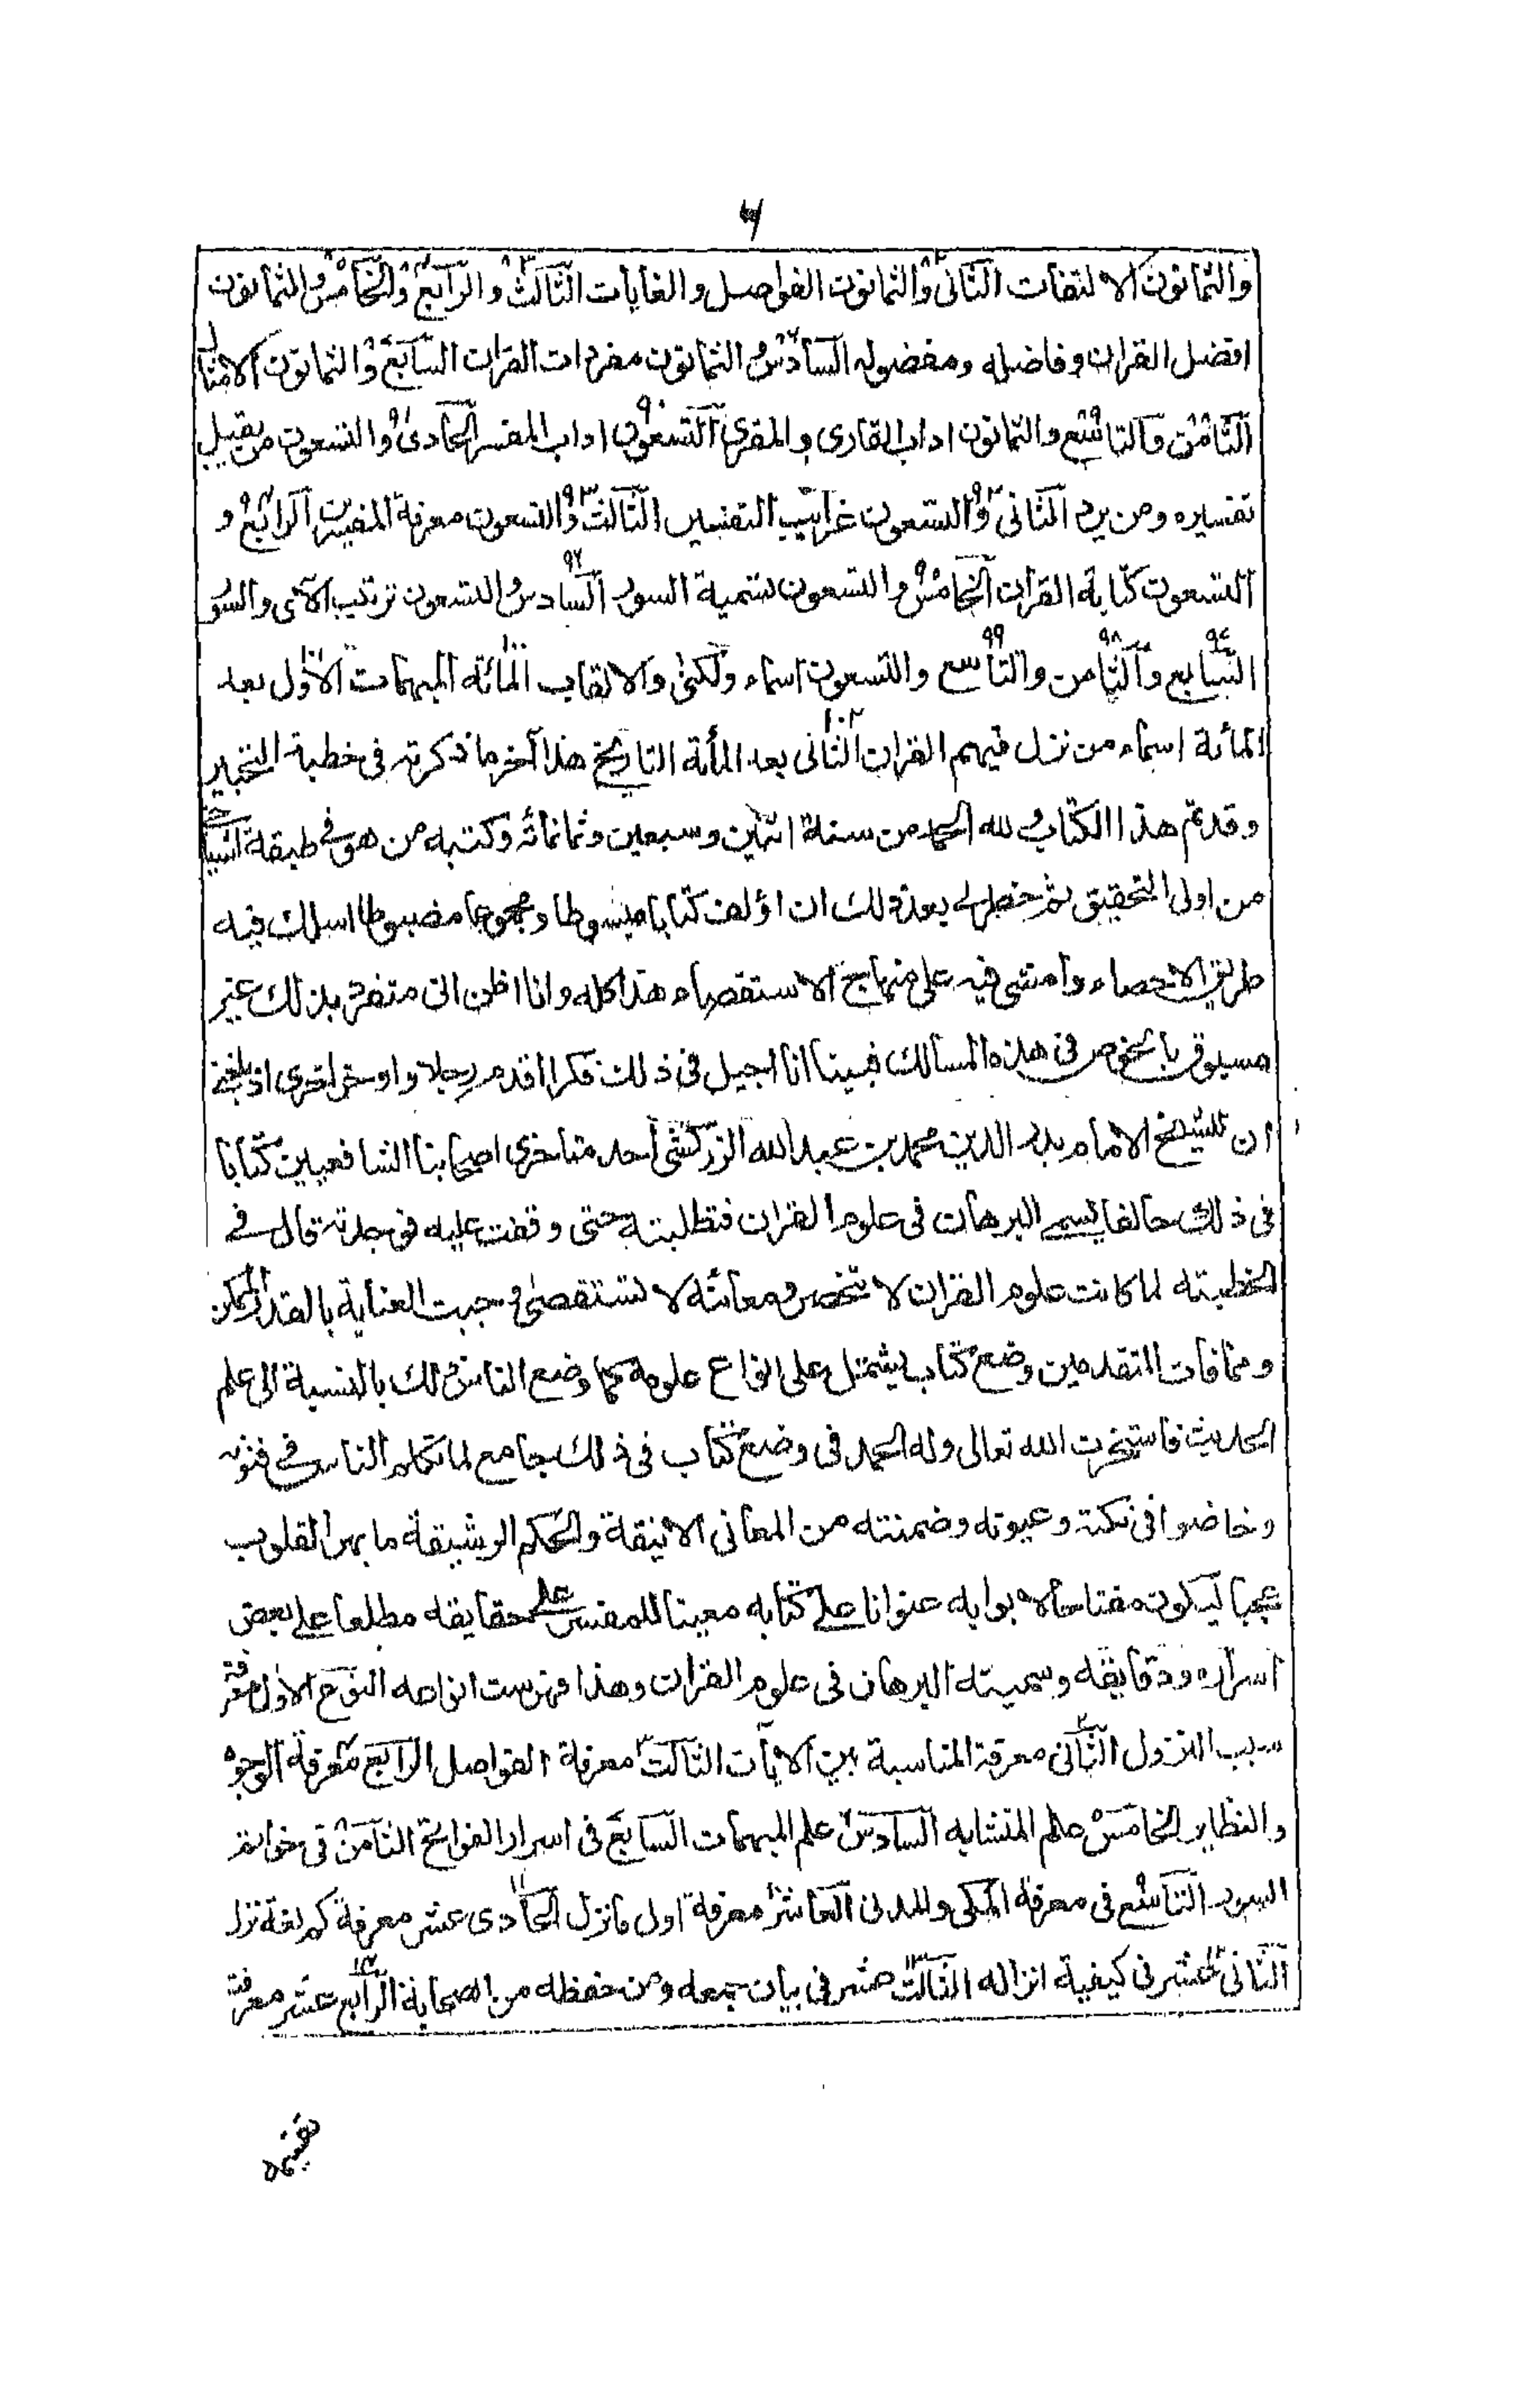 ٦
والثمانون الالتفات الثانى والثمانون الفواصل والغايات الثالث والرابع والخامس والثمانون
افضل القران وفاضله ومفضوله السادس والثمانون مفردات القران السابع والثمانون الامثال
الثامن والتاسع والثمانون اداب القارى والمقرى التسعون اداب المفسر الحادى والتسعون من يقبل
تفسيره ومن يرد الثانى والتسعون غرايب التفسير الثالث والتسعون معرفة المفسرين الرابع و
التسعون كتابة القران الخامس والتسعون تسمية السور السادس والتسعون ترتيب الآى والسور
السابع والثامن والتاسع والتسعون اسماء والكنى والالقاب المائه المبهمات الاول بعد
المائة اسماء من نزل فيهم القران الثانى بعد المأئة التاريخ هذا آخر ما ذكرته فى خطبة التحبير
وقد تم هذا الكتاب ولله الحمد من سنة اثنين وسبعين وثمانمائه وكتبه من هو فى طبقة اشياخى
من اولى التحقيق ثم خطر لى بعد ذلك ان اؤلف كتابا مبسوطا ومجموعا مضبوطا اسلك فيه
طريق الاحصاء وامشى فيه على منهاج الاستقصاء هذا كله وانا اظن انى متفرد بذلك غير
مسبوق بالخوض فى هذه المسالك فبينا انا اجيل فى ذلك فكرا اقدم رجلا واوخر اخرى اذ بلغنى
ان للشيخ الامام بدر الدين محمد بن عبد الله الزركشى احد متاخرى اصحابنا الشافعيين كتابا
فى ذلك حافلا يسمى البرهان فى علوم القران فتطلبته حتى وقفت عليه فوجدته قال فى
الخطبته لما كانت علوم القران لا تنحصر ومعانيه لا تستقصى وجبت العناية بالقدر الممكن
ومما فات المتقدمين وضع كتاب يشتمل على انواع علومه كما وضع الناس ذلك بالنسبة الى علم
الحديث فاستخرت الله تعالى وله الحمد فى وضع كتاب فى ذلك جامع لما تكلم الناس فى فنونه
وخاضوا فى نكتة وعيونه وضمنته من المعانى الانيقة والحكم الرشيقة ما بهر القلوب
عجبا ليكون مفتاحا لابوابه عنوانا على كتابه معينا للمفسر على حقايقه مطلعا على بعض
اسراره ودقايقه وسميته البرهان فى علوم القران وهذا فهرست انواعه النوع الاول معرفة
سبب النزول الثانى معرفة المناسبة بين الايات الثالث معرفة الفواصل الرابع معرفة الوجوه
والنظاير الخامس علم المتشابه السادس علم المبهمات السابع فى اسرار الفواتح الثامن فى خواتم
السور التاسع فى معرفة المكى والمدنى العاشر معرفة اول ما نزل الحادى عشر معرفة كم لغة نزل
الثانى عشر فى كيفية انزاله الثالث عشر فى بيان جمعه ومن حفظه من الصحابة الرابع عشر معرفة
تقسيمه